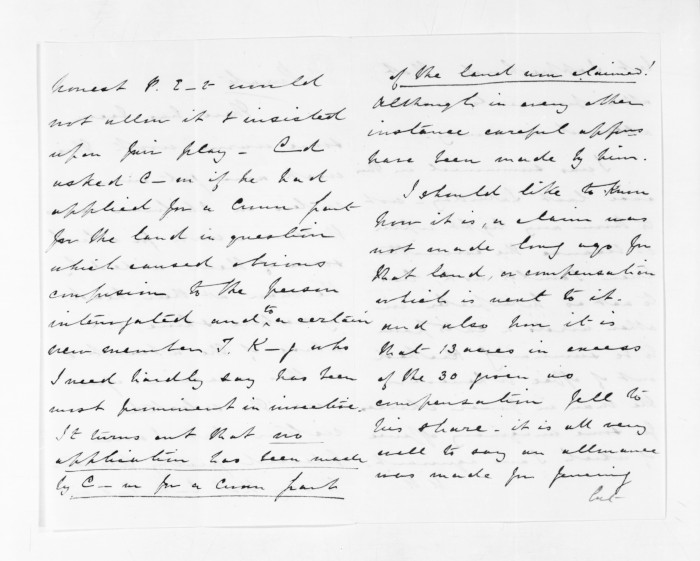 honest P. E–t would
not allow it & insisted
upon fair play – C–d
asked C–n if he had
applied for a Crown Grant
for the land in question
which caused obvious
confusion to the person
interrogated and to a certain
new member T. K–g who
I need hardly say has been
most prominent in invective.
It turns out that no
application has been made
by C–n for a Crown Grant
of the land now claimed!
Although in every other
instance careful appns
have been made by him.
I should like to know
how it is, a claim was
not made long ago for
that land, or compensation
which is next to it.
and also how it is
that 13 acres in excess
of the 30 given as
compensation fell to
his share – it is all very
well to say an allowance
was made for fencing
but